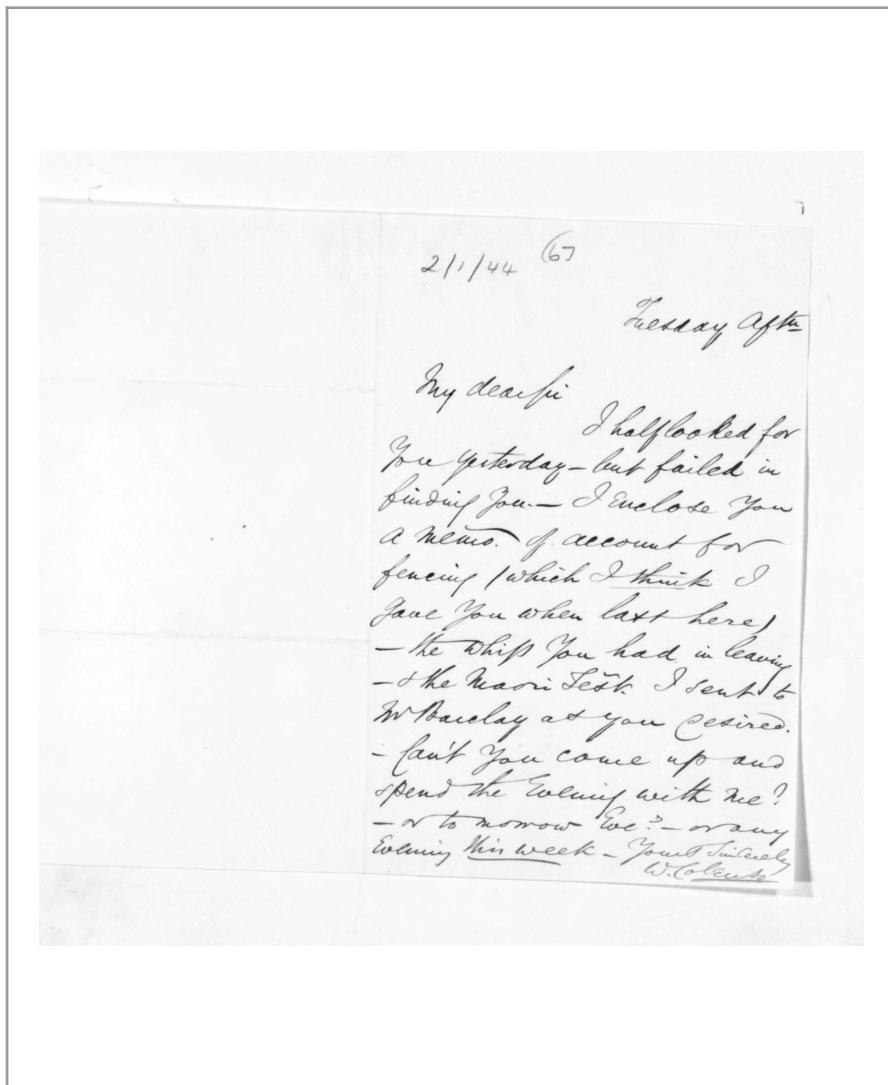 2/1/44 (67
Tuesday Aftn
My dear Sir
I half looked for
You yesterday – but failed in
finding You. – I Enclose You
a memo. of account for
fencing (which I think I
gave You when last here)
– the whip You had in leaving
– & the Maori Test. I sent to
Mr Barclay as you desired.
– Can't You come up and
spend the Evening with me?
– or to morrow Eve? – or any
Evening this week – Yours Sincerely
W. Colenso